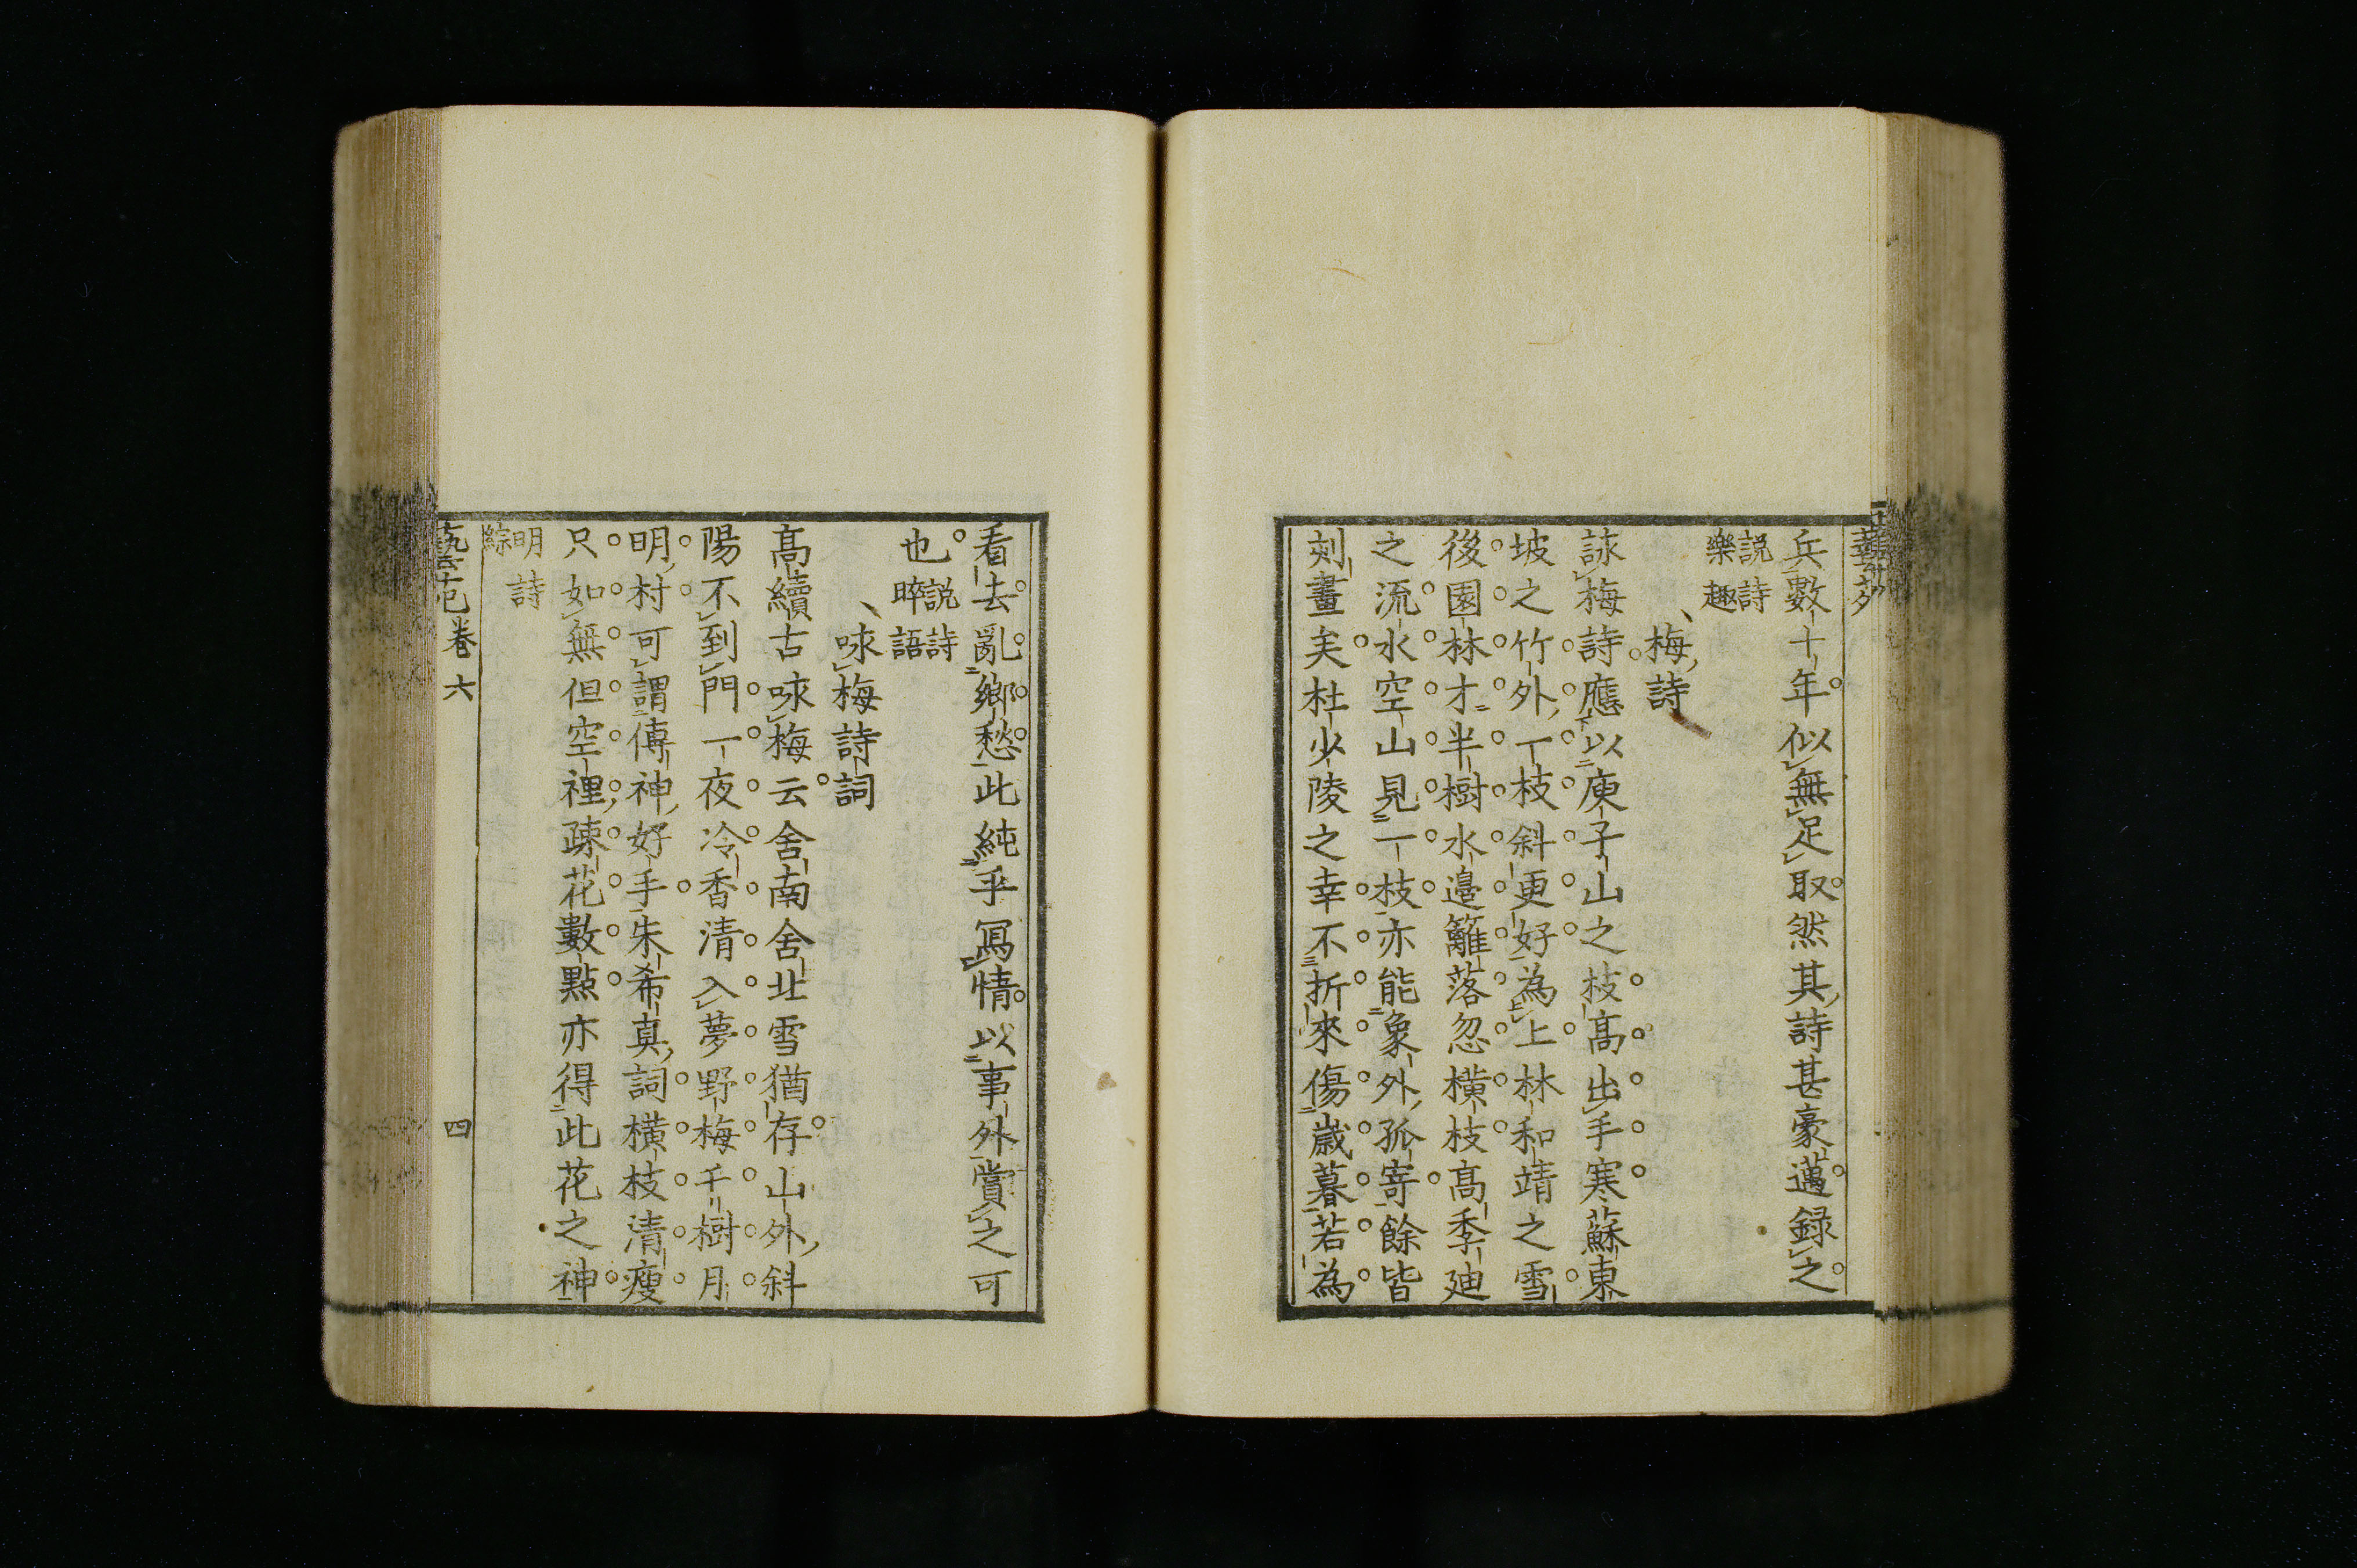 兵數十年似無足取然其詩甚豪邁録之
説詩
樂趣
梅詩
詠梅詩應以庾子山之枝高出手寒蘇東
坡之竹外一枝斜更好為上林和靖之雪
後園林才半樹水邉籬落忽橫枝高季迪
之流水空山見一枝亦能象外孤寄餘皆
刻畫矣杜少陵之幸不折來傷歳暮若為
看去亂鄉愁此純乎寫情以事外賞之可
也
説詩
晬語
咏梅詩詞
高續古咏梅云舍南舍北雪猶存山外斜
陽不到門一夜冷香清入夢野梅千樹月
明村可謂傳神好手朱希真詞橫枝清瘦
只如無但空裡疎花數點亦得此花之神
明詩
綜
卷六
四